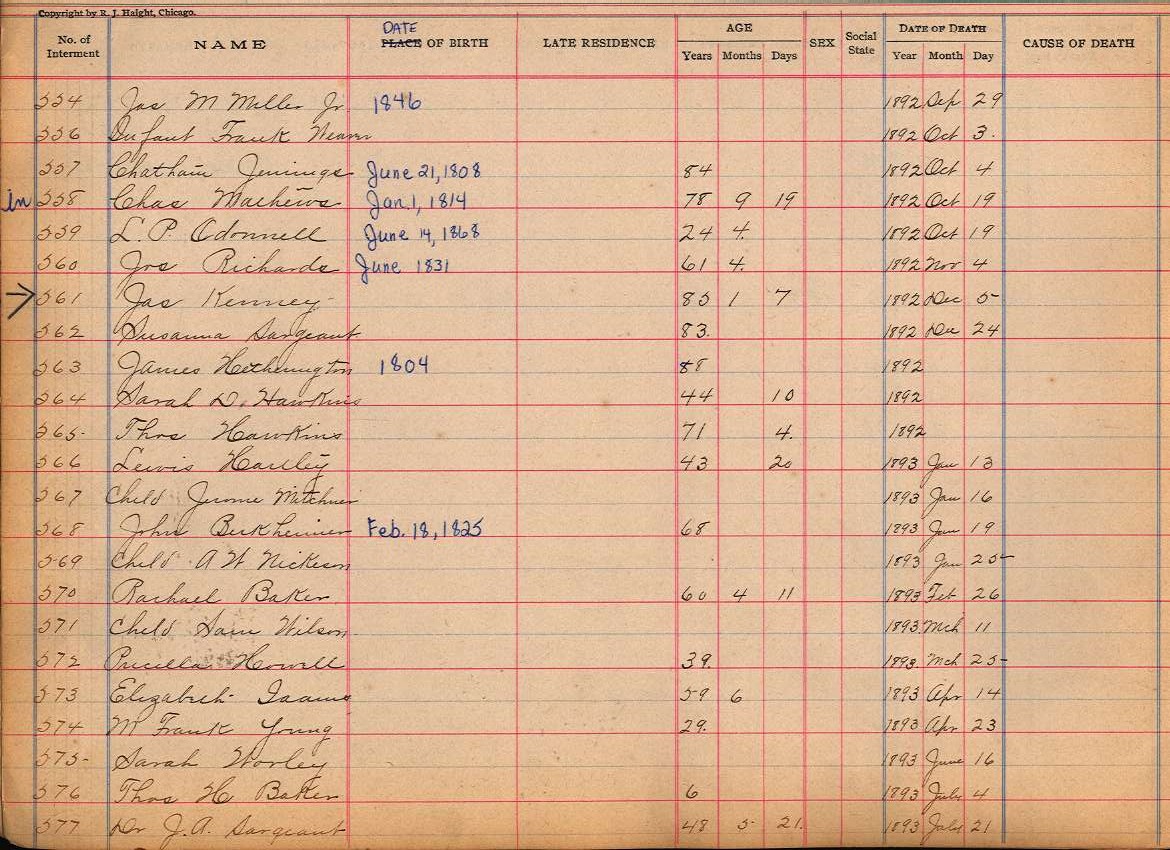 Copyright by R. J. Haight, Chicago.
No. of Interment NAME DATE PLACE OF BIRTH LATE RESIDENCE AGE Years Months Days SEX Social State DATE OF DEATH Year Month Day CAUSE OF DEATH
554 Jas M Miller Jr 1846 1892 Sep 29
556 Infant Frank Weaver 1892 Oct 3.
557 Chatham Jennings June 21, 1808 84 1892 Oct 4
in 558 Chas Mathews Jan. 1, 1814 78 9 19 1892 Oct 19
559 L. P. Odonnell June 14, 1868 24 4. 1892 Oct 19
560 Jos Richards June 1831 61 4. 1892 Nov 4
→ 561 Jas Kenney 85 1 7 1892 Dec 5
562 Susanna Sargeant 83. 1892 Dec 24
563 James Hetherington 1804 88 1892
564 Sarah D. Hawkins 44 10 1892
565 Thos Hawkins 71 4. 1892
566 Lewis Hartley 43 20 1893 Jan 13
567 Child Jerome Mitchner 1893 Jan 16
568 John Berkheimer Feb. 18, 1825 68 1893 Jan 19
569 Child A W Nickeson 1893 Jan 25
570 Rachael Baker 60 4 11 1893 Feb 26
571 Child Sam Wilson 1893 Mch 11
572 Precilla Howell 39. 1893 Mch 25
573 Elizabeth 59 6 1893 Apr 14
574 M Frank Young 29. 1893 Apr 23
575 Sarah Worley 1893 June 16
576 Thos H Baker 6 1893 July 4
577 Dr J. A. Sargeant 48 5 21. 1893 July 21